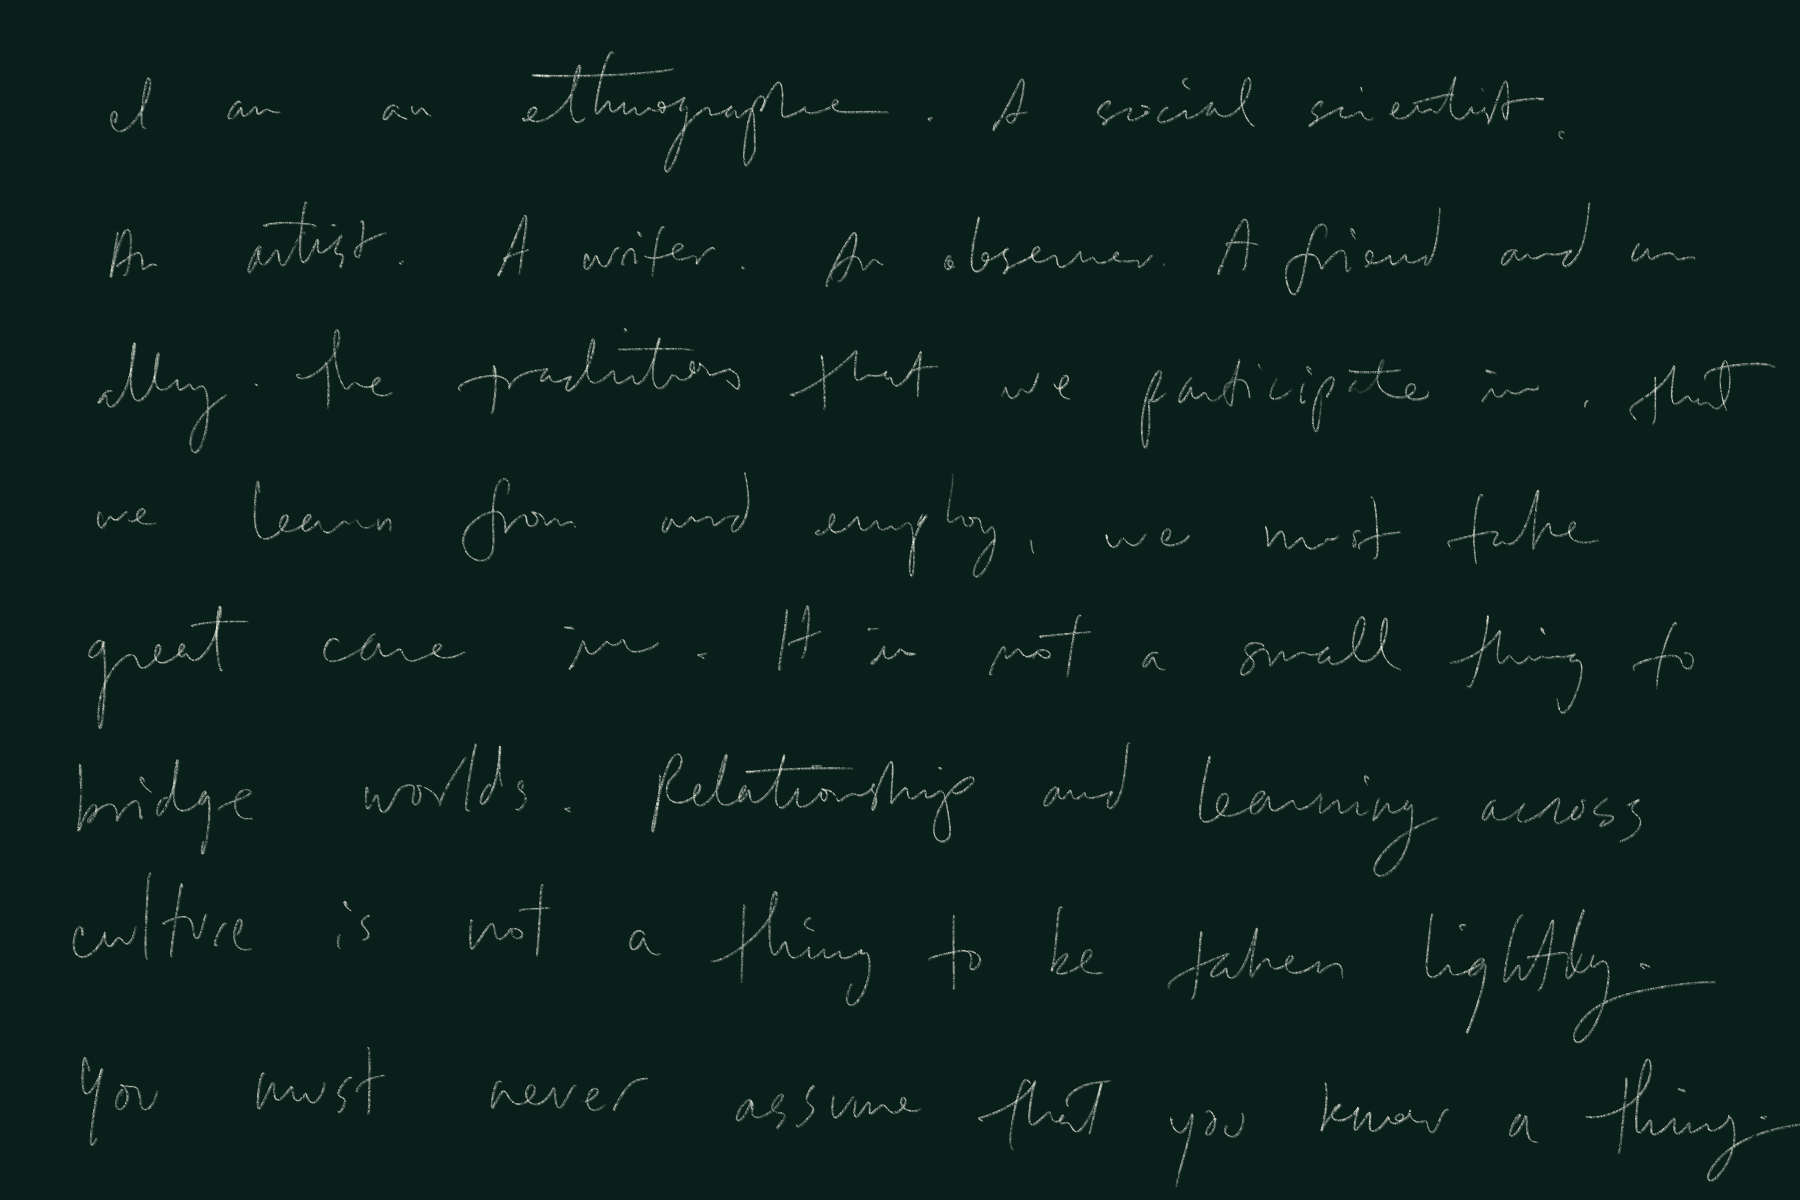 I am an ethnographer. A social scientist.
An artist. A writer. An observer. A friend and an
ally. The traditions that we participate in, that
we learn from and employ, we must take
great care in. It is not a small thing to
bridge worlds. Relationship and learning across
culture is not a thing to be taken lightly.
You must never assume that you know a thing.